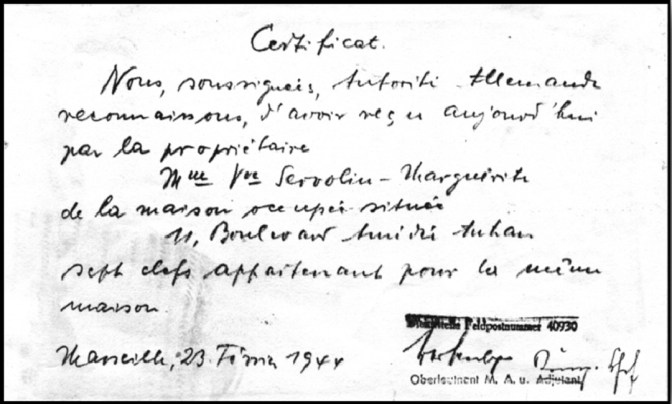 Certificat.
Nous, soussignés, Autorité Allemande
reconnaissons, d'avoir reçu aujourd'hui
par la propriétaire
Mme Vve Servolin - Marguérite
de la maison occupée située
11, Boulevard Amédée Autran
sept clefs appartenant pour la même
maison.
Marseille, 23. Février 1944
Dienststelle Feldpostnummer 40930
Oberleutnant M. A. u. Adjutant